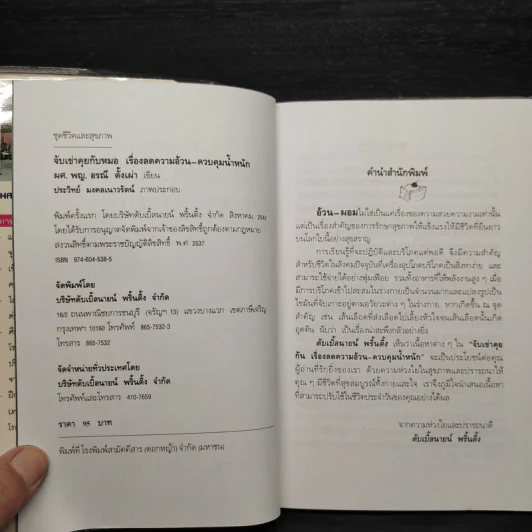 ชุดชีวิตและสุขภาพ
จับเข่าคุยกับหมอ เรื่องลดความอ้วน-ควบคุมน้ำหนัก
ผศ. พญ. อรณี ตั้งเผ่า เขียน
ประวิทย์ มงคลเนาวรัตน์ ภาพประกอบ
พิมพ์ครั้งแรก โดยบริษัทดับเบิ้ลนายน์ พริ้นติ้ง สิงหาคม 2542
โดยได้รับการอนุญาตจัดพิมพ์จากเจ้าของลิขสิทธิ์ถูกต้องตามกฎหมาย
สงวนสิทธิ์ตามพระราชบัญญัติลิขสิทธิ์ พ.ศ. 2537
ISBN 974-604-538-5
จัดพิมพ์โดย
บริษัทดับเบิ้ลนายน์ พริ้นติ้ง จำกัด
16/2 ถนนพาณิชยการธนบุรี (จรัญฯ 13) แขวงบางแวก เขตภาษีเจริญ
กรุงเทพฯ 10160 โทรศัพท์ 865-7532-3
โทรสาร 865-7532
จัดจำหน่ายทั่วประเทศโดย
บริษัทดับเบิ้ลนายน์ พริ้นติ้ง จำกัด
โทรศัพท์และโทรสาร 410-7659
ราคา 95 บาท
พิมพ์ที่ โรงพิมพ์สามัคคีสาร (ดอกหญ้า) จำกัด (มหาชน)
คำนำสำนักพิมพ์
อ้วน-ผอม ไม่ใช่เป็นแค่เรื่องของความสวยความงามเท่านั้น
แต่เป็นเรื่องสำคัญของการรักษาสุขภาพให้แข็งแรงให้มีชีวิตที่ยืนยาว
บนโลกใบนี้อย่างสุขสราญ
การเรียนรู้ที่จะปฏิบัติและบริโภคแต่พอดี จึงมีความสำคัญ
สำหรับชีวิตในสังคมปัจจุบันที่เครื่องอุปโภคบริโภคเป็นสิ่งหาง่าย และ
สามารถใช้จ่ายได้อย่างฟุ่มเฟือย รวมทั้งอาหารที่ให้พลังงานสูง ๆ เมื่อ
มีการบริโภคเข้าไปสะสมในร่างกายเป็นจำนวนมากและแปรรูปเป็น
ไขมันที่จับเกาะอยู่ตามอวัยวะต่าง ๆ ในร่างกาย หากเกิดขึ้น ณ จุด
สำคัญ เช่น เส้นเลือดที่ส่งเลือดไปเลี้ยงหัวใจจนเส้นเลือดนั้นเกิด
อุดตัน นับว่า เป็นเรื่องน่าสะพึงกลัวอย่างยิ่ง
ดับเบิ้ลนายน์ พริ้นติ้ง เห็นว่าเนื้อหาต่าง ๆ ใน "จับเข่าคุย
กัน เรื่องลดความอ้วน-ควบคุมน้ำหนัก" จะเป็นประโยชน์ต่อคุณ
ผู้อ่านที่รักยิ่งของเรา ด้วยความห่วงใยในสุขภาพและปรารถนาให้
คุณ ๆ มีชีวิตที่สุขสมบูรณ์ทั้งกายและใจ เราจึงภูมิใจนำเสนอเนื้อหา
ที่สามารถปรับใช้ในชีวิตประจำวันของคุณอย่างได้ผล
จากความห่วงใยและปรารถนาดี
ดับเบิ้ลนายน์ พริ้นติ้ง